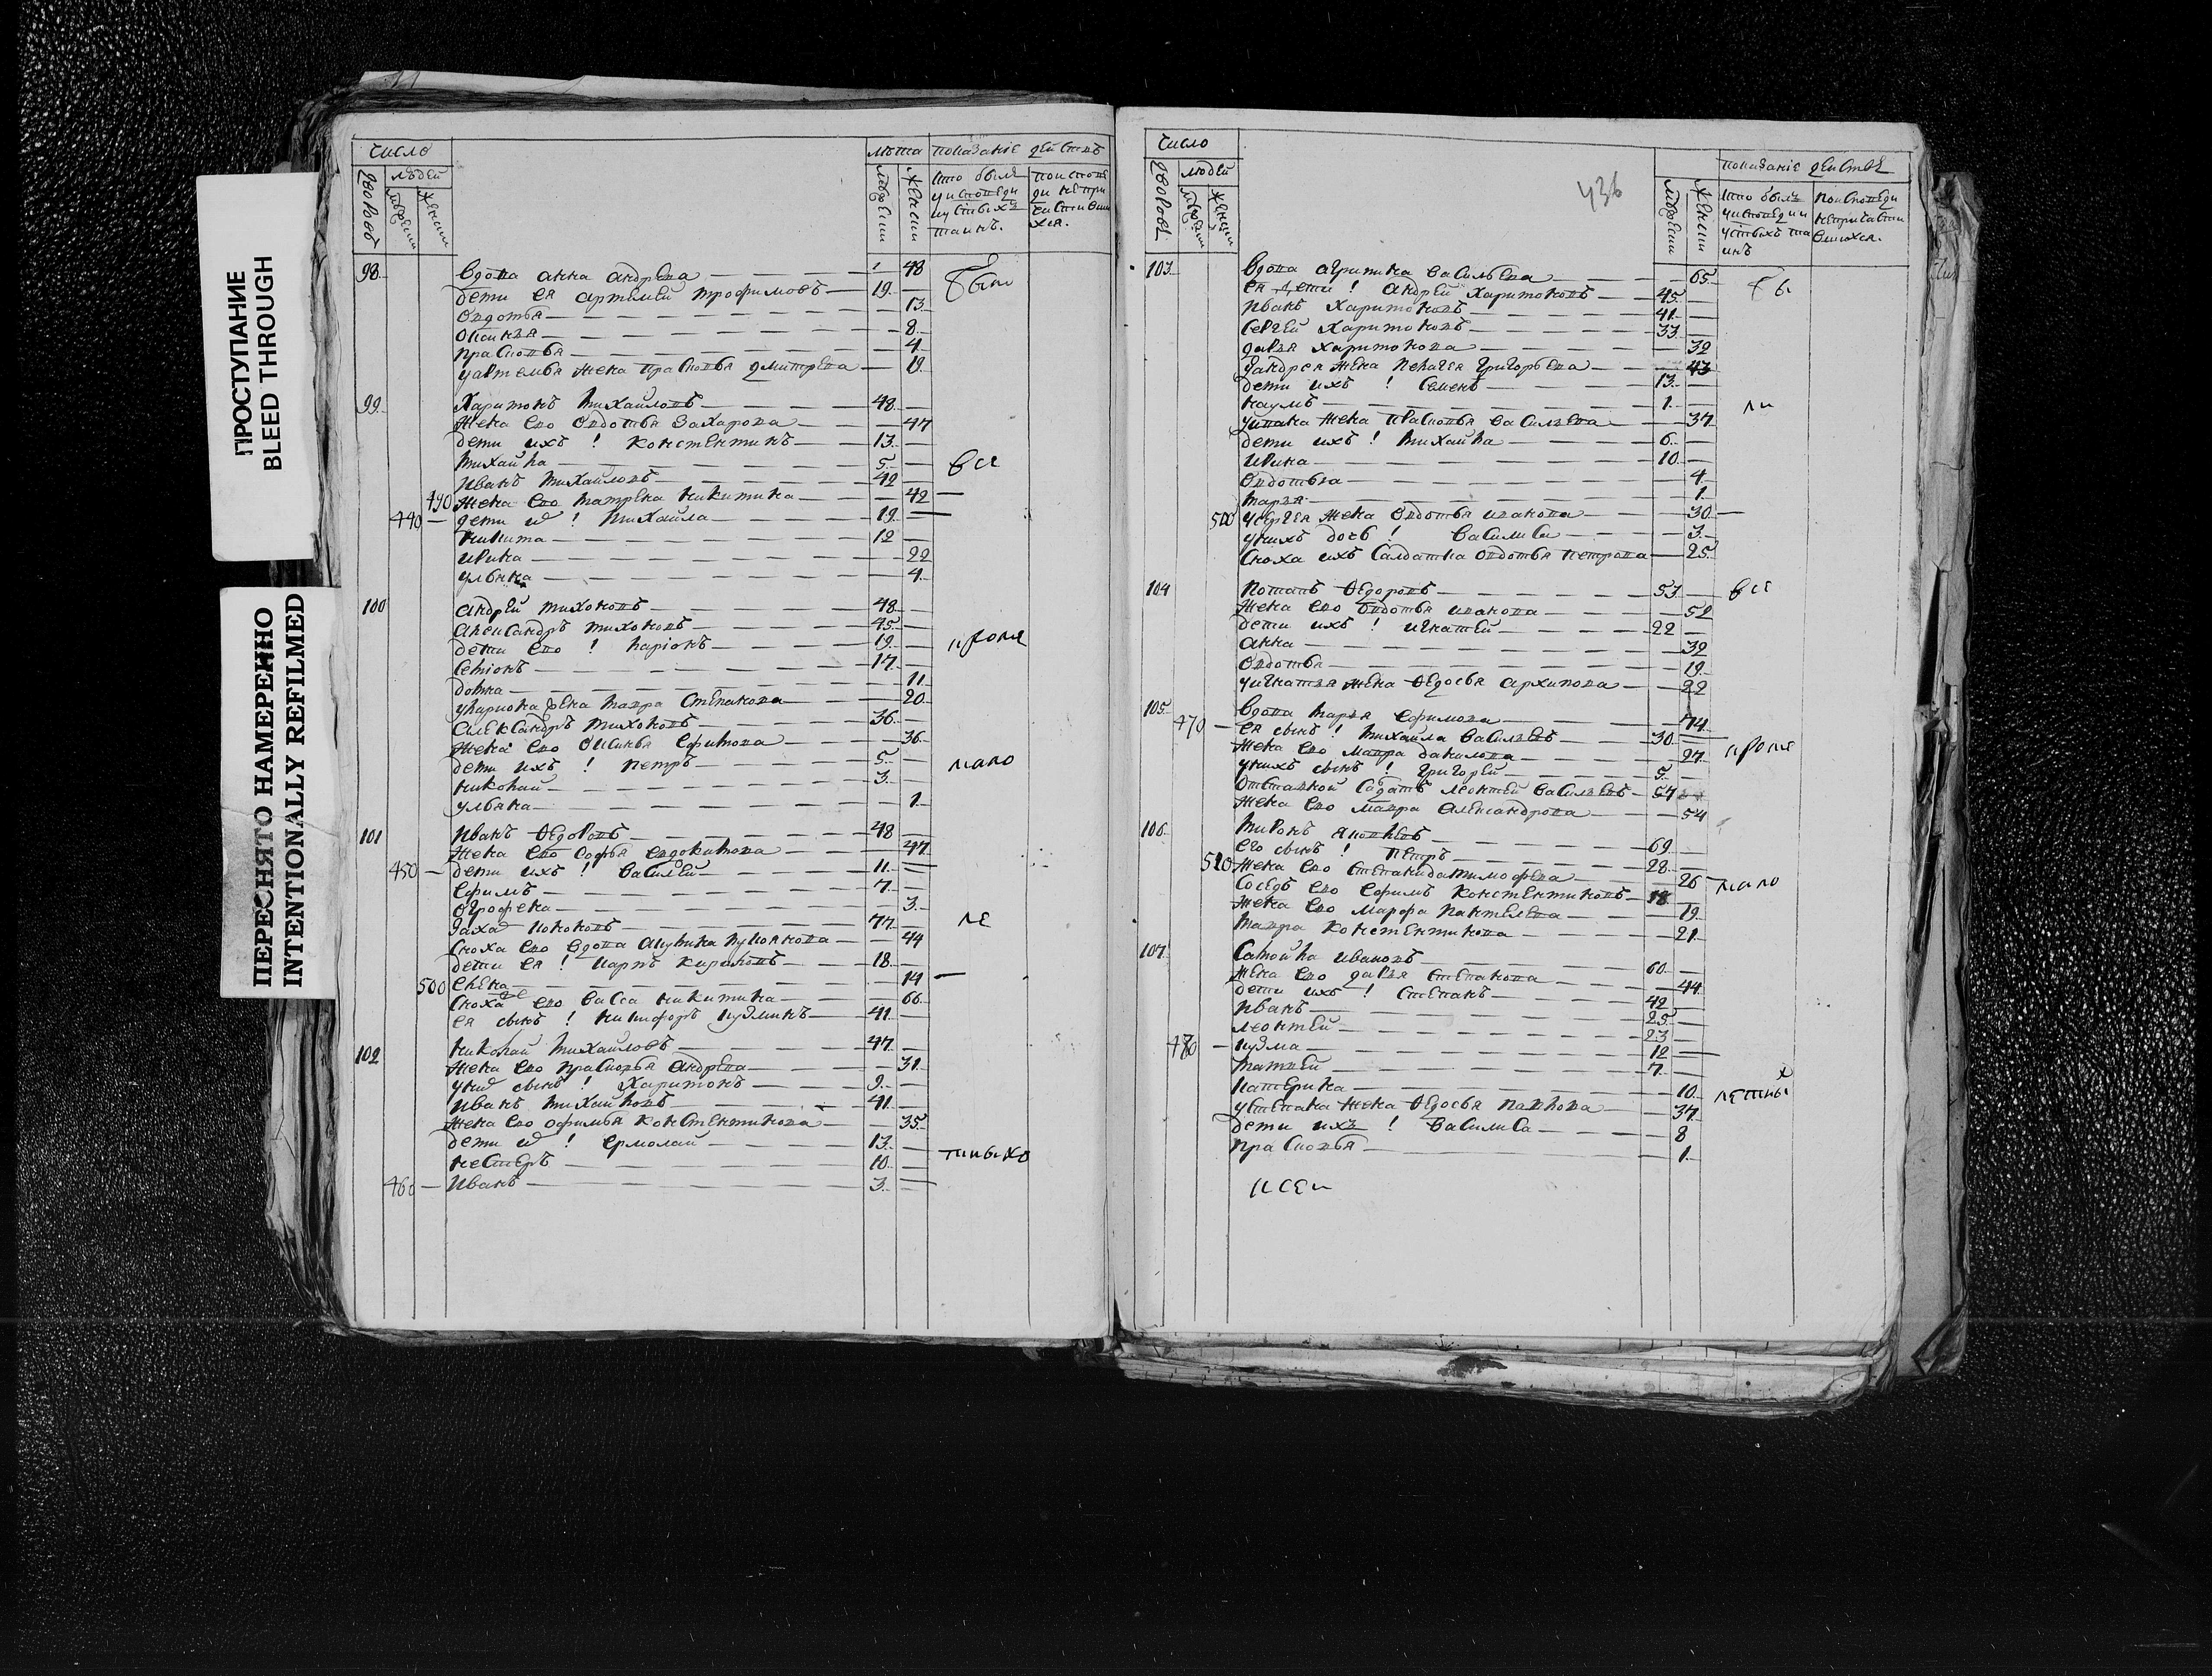 ПРОСТУПАНИЕ
BLEED THROUGH
ПЕРЕСНЯТО НАМЕРЕННО
INTENTIONALLY REFILMED
число
лѣта показанїе дѣйствъ
дворовъ
людей
мужеск
женск
мужеск
женск
кто былъ у исповѣди и у святыхъ таинъ.
98. Вдова анна андрева 48
дети ея артемей трофимовъ 19
овдотья 13
оксинья 8
прасковья 4
уартемья жена прасковья дмитрева 19
99. Харитонъ михайловъ 48
жена ево овдотья захарова 47
дети ихъ ! констентинъ 13
михайла 5
иванъ михайловъ 42
490 жена ево матрена никитина 42
440 дети их ! михайла 19
никита 12
ирина 22
ульяна 4
100 андрей тихоновъ 48
александръ тихоновъ 45
дети ево ! ларионъ 19
семионъ 17
домна 11
улариона жена мавра степанова 20
александръ тихоновъ 36
жена ево оксинья ефимова 36
дети ихъ ! петръ 5
николай 3
ульяна 1
101 иванъ ѳедоровъ 48
жена ево софья евдокимова 47
450 дети ихъ ! василей 11
ефимъ 7
огрофена 3
захар 77
сноха ево вдова акулина лукоянова 44
дети ея ! карпъ 18
500 елена 14
сноха ево васса никитина 66
ея сынъ ! никифоръ кузминъ 41
102 николай михайловъ 47
жена ево прасковья андрева 31
у них сынъ ! харитонъ 9
иванъ михайловъ 41
жена ево офимья констентинова 35
дети их ! ермолай 13
нестеръ 10
460 иванъ 3
были
все
кроме
мало
ле
тных
436
число
показанїе действъ
дворовъ
людей
мужеск
женск
мужеск
женск
кто былъ у исповеди и у святыхъ таинъ
103 Вдова агрипина васильева 65
ея дети ! андрей харитоновъ 45
иванъ харитоновъ 41
сергей харитоновъ 33
дарья харитонова 32
уандрея жена пелагея григорьева 43
дети ихъ ! семенъ 13
наумъ 1
уивана жена прасковья васильева 37
дети ихъ ! михайла 6
ирина 10
овдотья 4
марья 1
500 усергея жена овдотья иванова 30
унихъ дочь ! василиса 3
сноха ихъ салдатка овдотья петрова 25
104 потапъ ѳедоровъ 53
жена ево овдотья иванова 52
дети ихъ ! игнатей 22
анна 32
овдотья 19
уигнатья жена ѳедосья архипова 22
105 Вдова марья ефимова 74
470 ея сынъ ! михайла васильевъ 30
жена ево мавра данилова 27
унихъ сынъ ! григорей 5
отставной салдатъ леонтей васильевъ 54
жена ево мавра александрова 54
106 миронъ яковлевъ 69
его сынъ ! петръ 28
510 жена ево степанида тимофева 26
соседъ ево ефимъ констентиновъ 18
жена ево марфа пантелева 19
мавра констентинова 21
107 самойла ивановъ 60
жена ево дарья степанова 44
дети ихъ ! степанъ 42
иванъ 25
леонтей 23
480 кузма 12
матвей 7
катерина 10
устепана жена ѳедосья павлова 37
дети ихъ ! василиса 8
прасковья 1
бы
ли
все
кроме
мало
летных